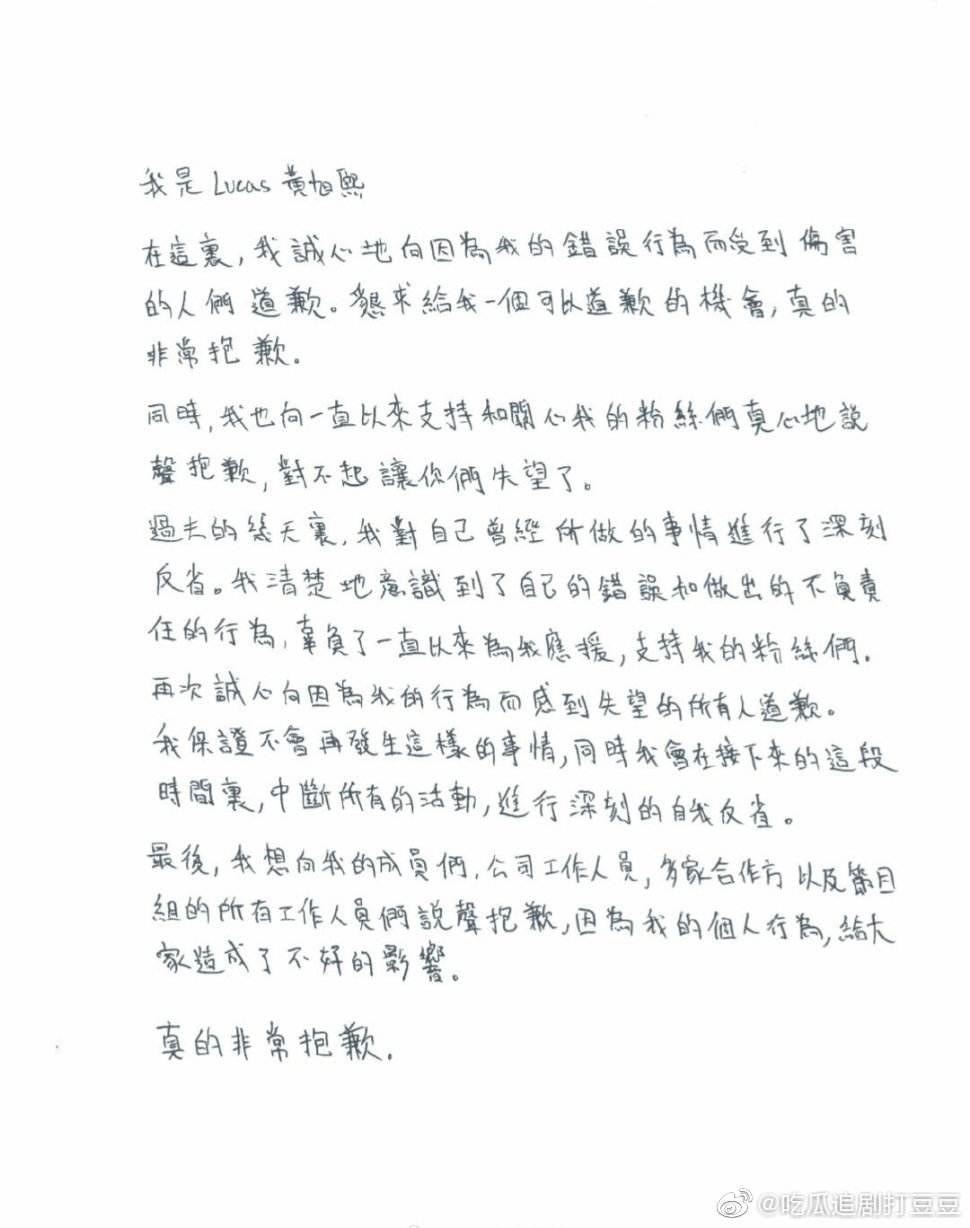 我是Lucas 黃旭熙
在這裏,我誠心地向因為我的錯誤行為而受到傷害
的人們道歉。懇求給我一個可以道歉的機會,真的
非常抱歉。
同時,我也向一直以來支持和關心我的粉絲們真心地說
聲抱歉,對不起讓你們失望了。
過去的幾天裏,我對自己曾經所做的事情進行了深刻
反省。我清楚地意識到了自己的錯誤和做出的不負責
任的行為,辜負了一直以來為我應援,支持我的粉絲們.
再次誠心向因為我的行為而感到失望的所有人道歉。
我保證不會再發生這樣的事情,同時我會在接下來的這段
時間裏,中斷所有的活動,進行深刻的自我反省。
最後,我想向我的成員們.公司工作人員,多家合作方以及節目
組的所有工作人員們說聲抱歉,因為我的個人行為,給大
家造成了不好的影響。
真的非常抱歉.
@吃瓜追剧打豆豆